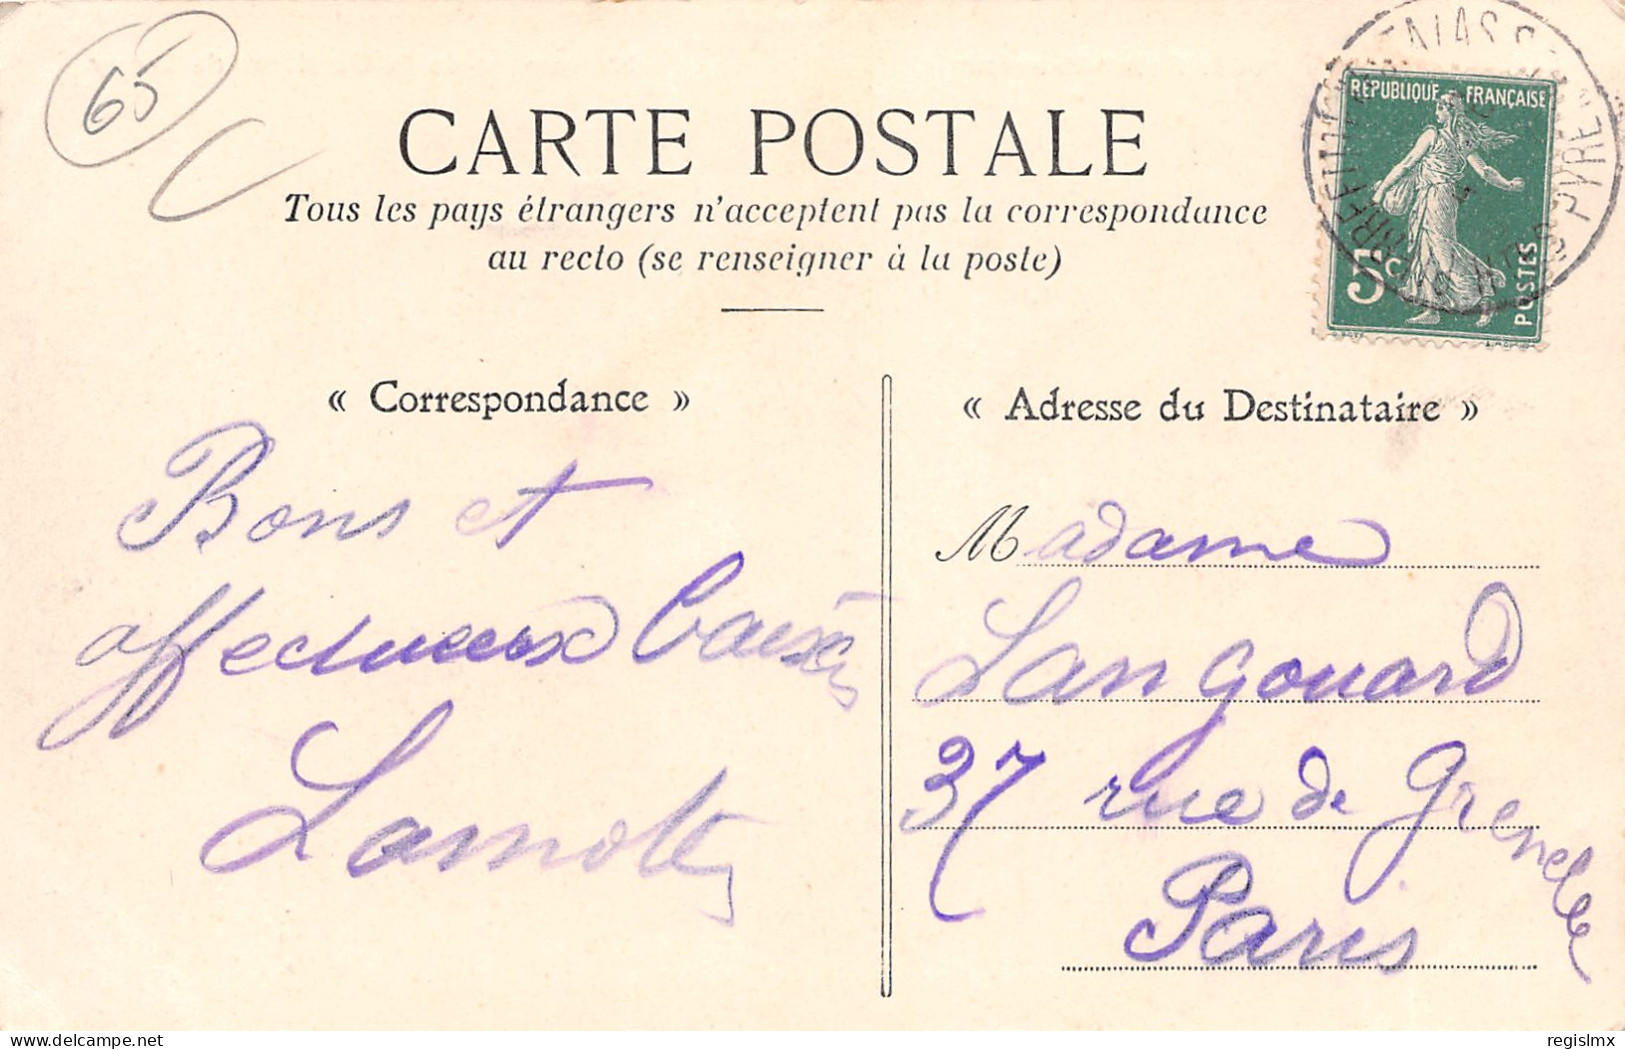 65
CARTE POSTALE
Tous les pays étrangers n'acceptent pas la correspondance
au recto (se renseigner à la poste)
RÉPUBLIQUE FRANÇAISE
5c
POSTES
« Correspondance »
Bons et
affectueux baisers
Lamotte
« Adresse du Destinataire »
Madame
Langouard
37 rue de Grenelle
Paris
regislmx